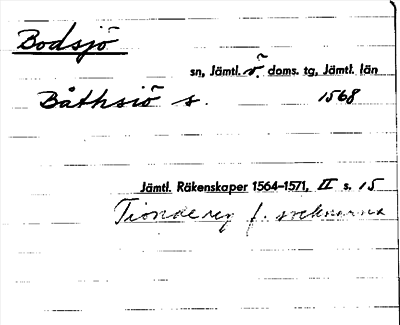 Bodsjö
sn, Jämtl. v. doms. tg, Jämtl. län
Båthsiö s. 1568
Jämtl. Räkenskaper 1564–1571, II s. 15
Tiondereg f. socknarna